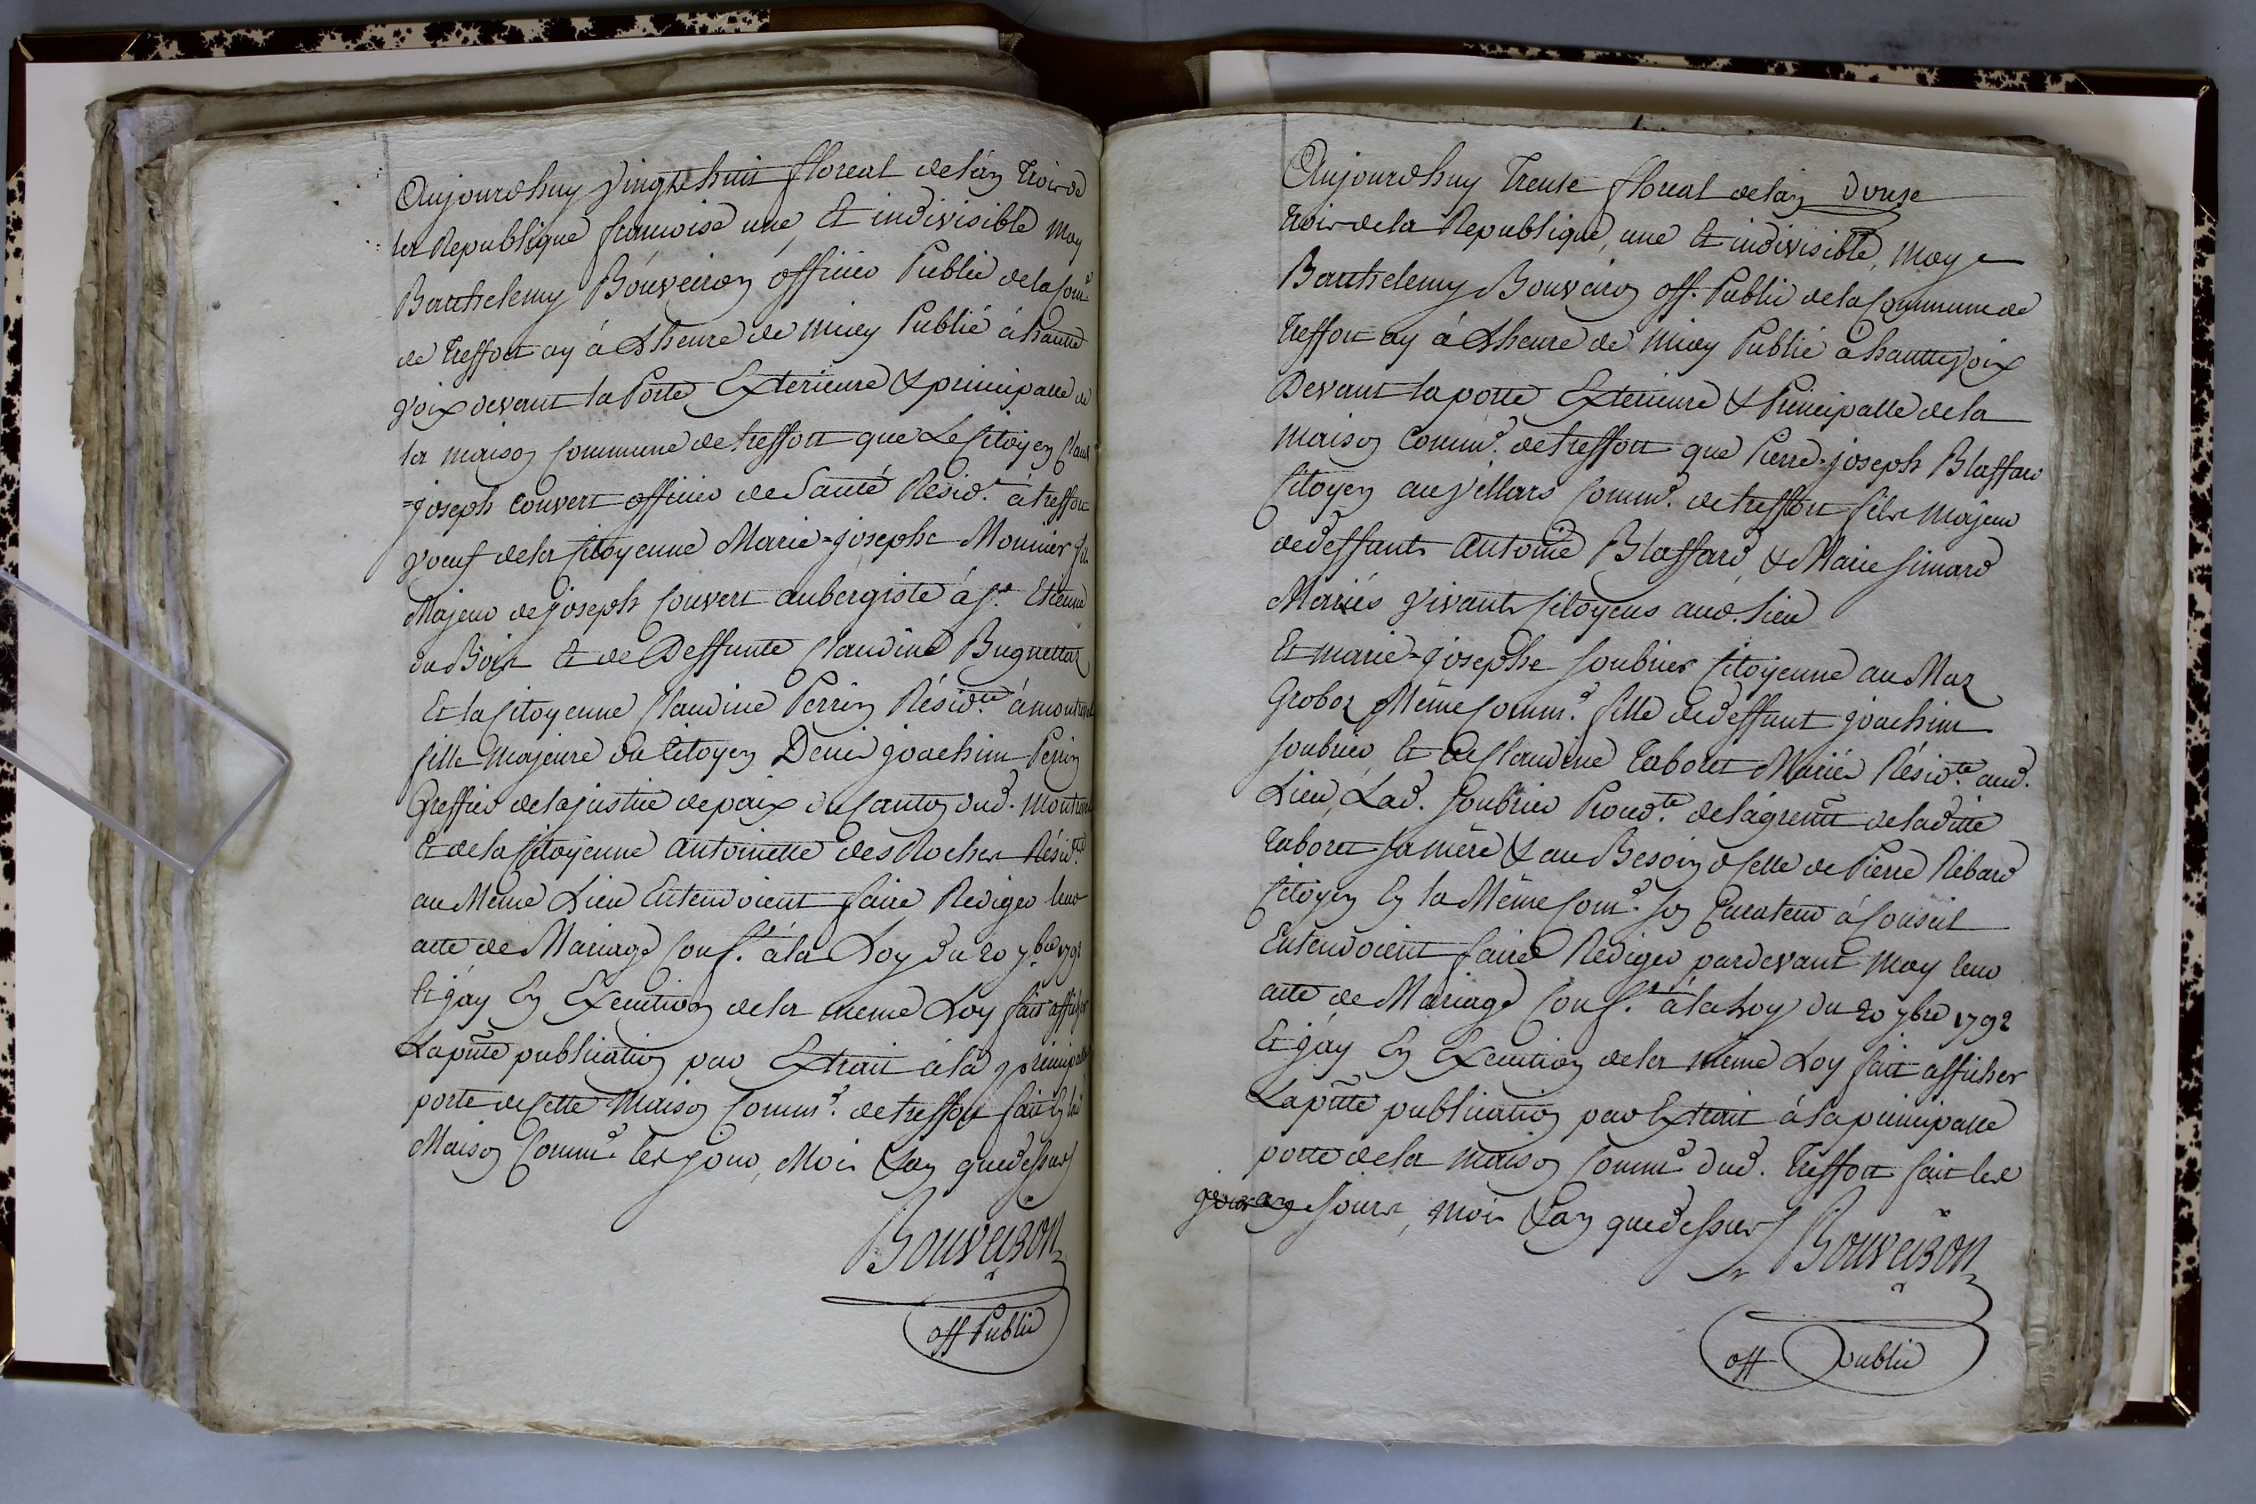 Aujourdhuy vingt huit floreal de l'an trois de
la Republique francoise une, Et indivisible, moy
Barthelemy Bouveiron officier Public de la Com.e
de treffort ay à Lheure de midy Publié à hautte
voix devant la Porte Exterieure & principalle de
la maison Commune de treffort que Le Citoyen Claud
=joseph Convert officier de Santé Résid.t à treffort
voeuf de la Citoyenne Marie=josephe Monnier fils
Majeur de joseph Convert aubergiste à St. Etienne
du Bois Et de Deffunte Claudine Buguettaz
Et la Citoyenne Claudine Perrin Résid.te à montrevel
fille Majeure du Citoyen Denis joachim Perrin
Greffier de la justice de paix du Canton dud. Montrevel
Et de la Citoyenne Antoinette des Rocher Résid.te
au Même Lieu Entendoient faire Rediger leur
acte de Mariage Conf.t à la Loy du 20 7bre 1792
Et j'ay En Execution de la meme Loy fait afficher
La pnte publication par Extrait à la principalle
porte de Cette Maison Comm.e de treffort fait En lad
Maison Comm.e les jour, Mois & an que dessus
Bouveiron
off Public
Aujourdhuy trente floreal de l'an douse
trois de la Republique, une Et indivisible, moy
Barthelemy Bouveiron off. Public de la Commune de
treffort ay à Lheure de midy Publié à hautte voix
Devant la porte Exterieure & Principalle de la
maison Comm.e de treffort que Pierre=joseph Blaffard
Citoyen au villars Comm.e de treffort fils Majeur
de deffunts Antoine Blaffard, & Marie Simard
Mariés vivants Citoyens aud. lieu
Et marie=josephe Soubrier Citoyenne au Maz
Groboz Même Comm.e fille de deffunt joachim
Soubrier, Et de Claudine Taboret Mariés Résid.te aud.
Lieu, Lad. Soubrier Proced.te de l'agremt de laditte
Taboret sa mère & au Besoin de Celle de Pierre Rébard
Citoyen En la Même Com.e son Curateur à Conseil
Entendoient faire Rediger pardevant moy leur
acte de Mariage Conf.t à la Loy du 20 7bre 1792
Et j'ay En Execution de la même Loy fait afficher
La pnte publication par Extrait à la principalle
porte de la maison Comm.e dud. treffort fait les
jours, mois & an que dessus
Bouveiron
off public